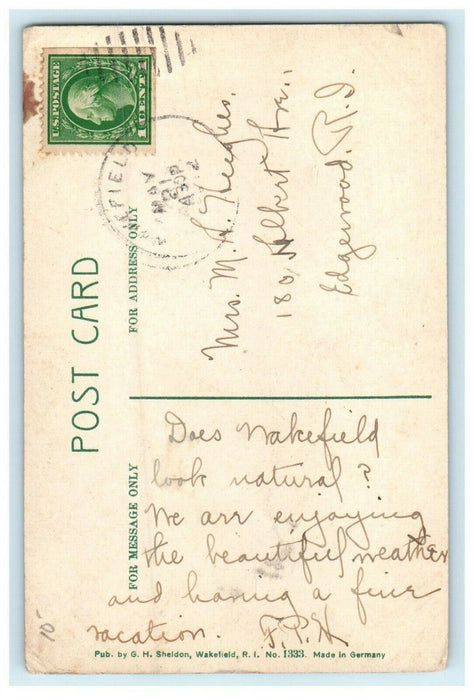 U.S. POSTAGE
1 CENT 1
POST CARD
FOR ADDRESS ONLY
Mrs. M. A. Hughes.
180 Albert Ave.,
Edgewood, R.I.
FOR MESSAGE ONLY
Does Wakefield
look natural?
We are enjoying
the beautiful weather
and having a fine
vacation. F.P.H
10-
Pub. by G. H. Sheldon, Wakefield, R. I. No. 1333. Made in Germany